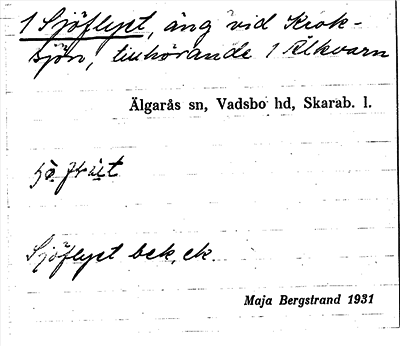 1 Sjöflyet, äng vid Krok-
sjön, tillhörande 1 Älkvarn
Älgarås sn, Vadsbo hd, Skarab. l.
Sjöflyet bek. ek.
Maja Bergstrand 1931